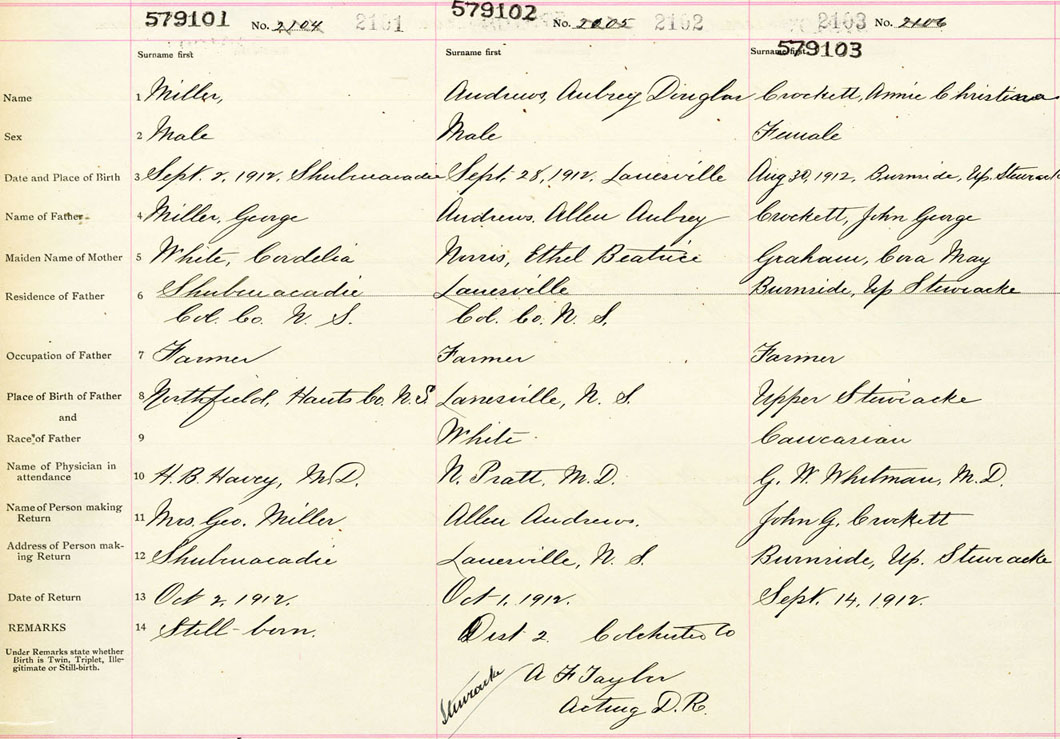 579101 No. 2104 2101 579102 No. 2005 2102 2103 No. 2106
Surname first Surname first Surname first 579103
Name 1 Miller, Andrews, Aubrey Dinglar Crockett, Annie Christiana
Sex 2 Male Male Female
Date and Place of Birth 3 Sept. 2, 1912, Shubenacadie Sept. 28, 1912, Lanesville Aug 30, 1912, Burnside, Up. Stewiacke
Name of Father 4 Miller, George Andrews, Allen Aubrey Crockett, John George
Maiden Name of Mother 5 White, Cordelia Norris, Ethel Beatrice Graham, Cora May
Residence of Father 6 Shubenacadie Lanesville Burnside, Up Stewiacke
Col. Co. N. S. Col. Co. N. S.
Occupation of Father 7 Farmer Farmer Farmer
Place of Birth of Father 8 Northfield, Hants Co. N. S. Lanesville, N. S. Upper Stewiacke
and
Race of Father 9 White Caucasian
Name of Physician in
attendance 10 H. B. Havey, M.D. N. Pratt, M.D. G. W. Whitman, M.D.
Name of Person making
Return 11 Mrs. Geo. Miller Allen Andrews. John G. Crockett
Address of Person mak-
ing Return 12 Shubenacadie Lanesville, N. S. Burnside, Up. Stewiacke
Date of Return 13 Oct 2, 1912. Oct 1, 1912. Sept. 14, 1912.
REMARKS 14 Still-born. Dist 2 Colchester Co
Under Remarks state whether
Birth is Twin, Triplet, Ille-
gitimate or Still-birth.
Stewiacke A F Taylor
Acting D.R.